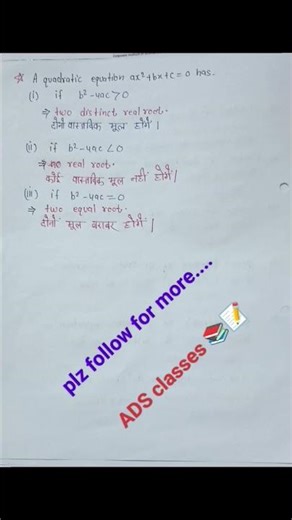 ☆ A quadratic equation ax²+bx+c=0 has.
(i) if b²-4ac>0
⇒ two distinct real root.
दोनों वास्तविक मूल होंगे।
(ii) if b²-4ac<0
⇒ no real root.
कोई वास्तविक मूल नहीं होंगे।
(iii) if b²-4ac=0
⇒ two equal root.
दोनों मूल बराबर होंगे।
plz follow for more....
ADS classes 📚📝